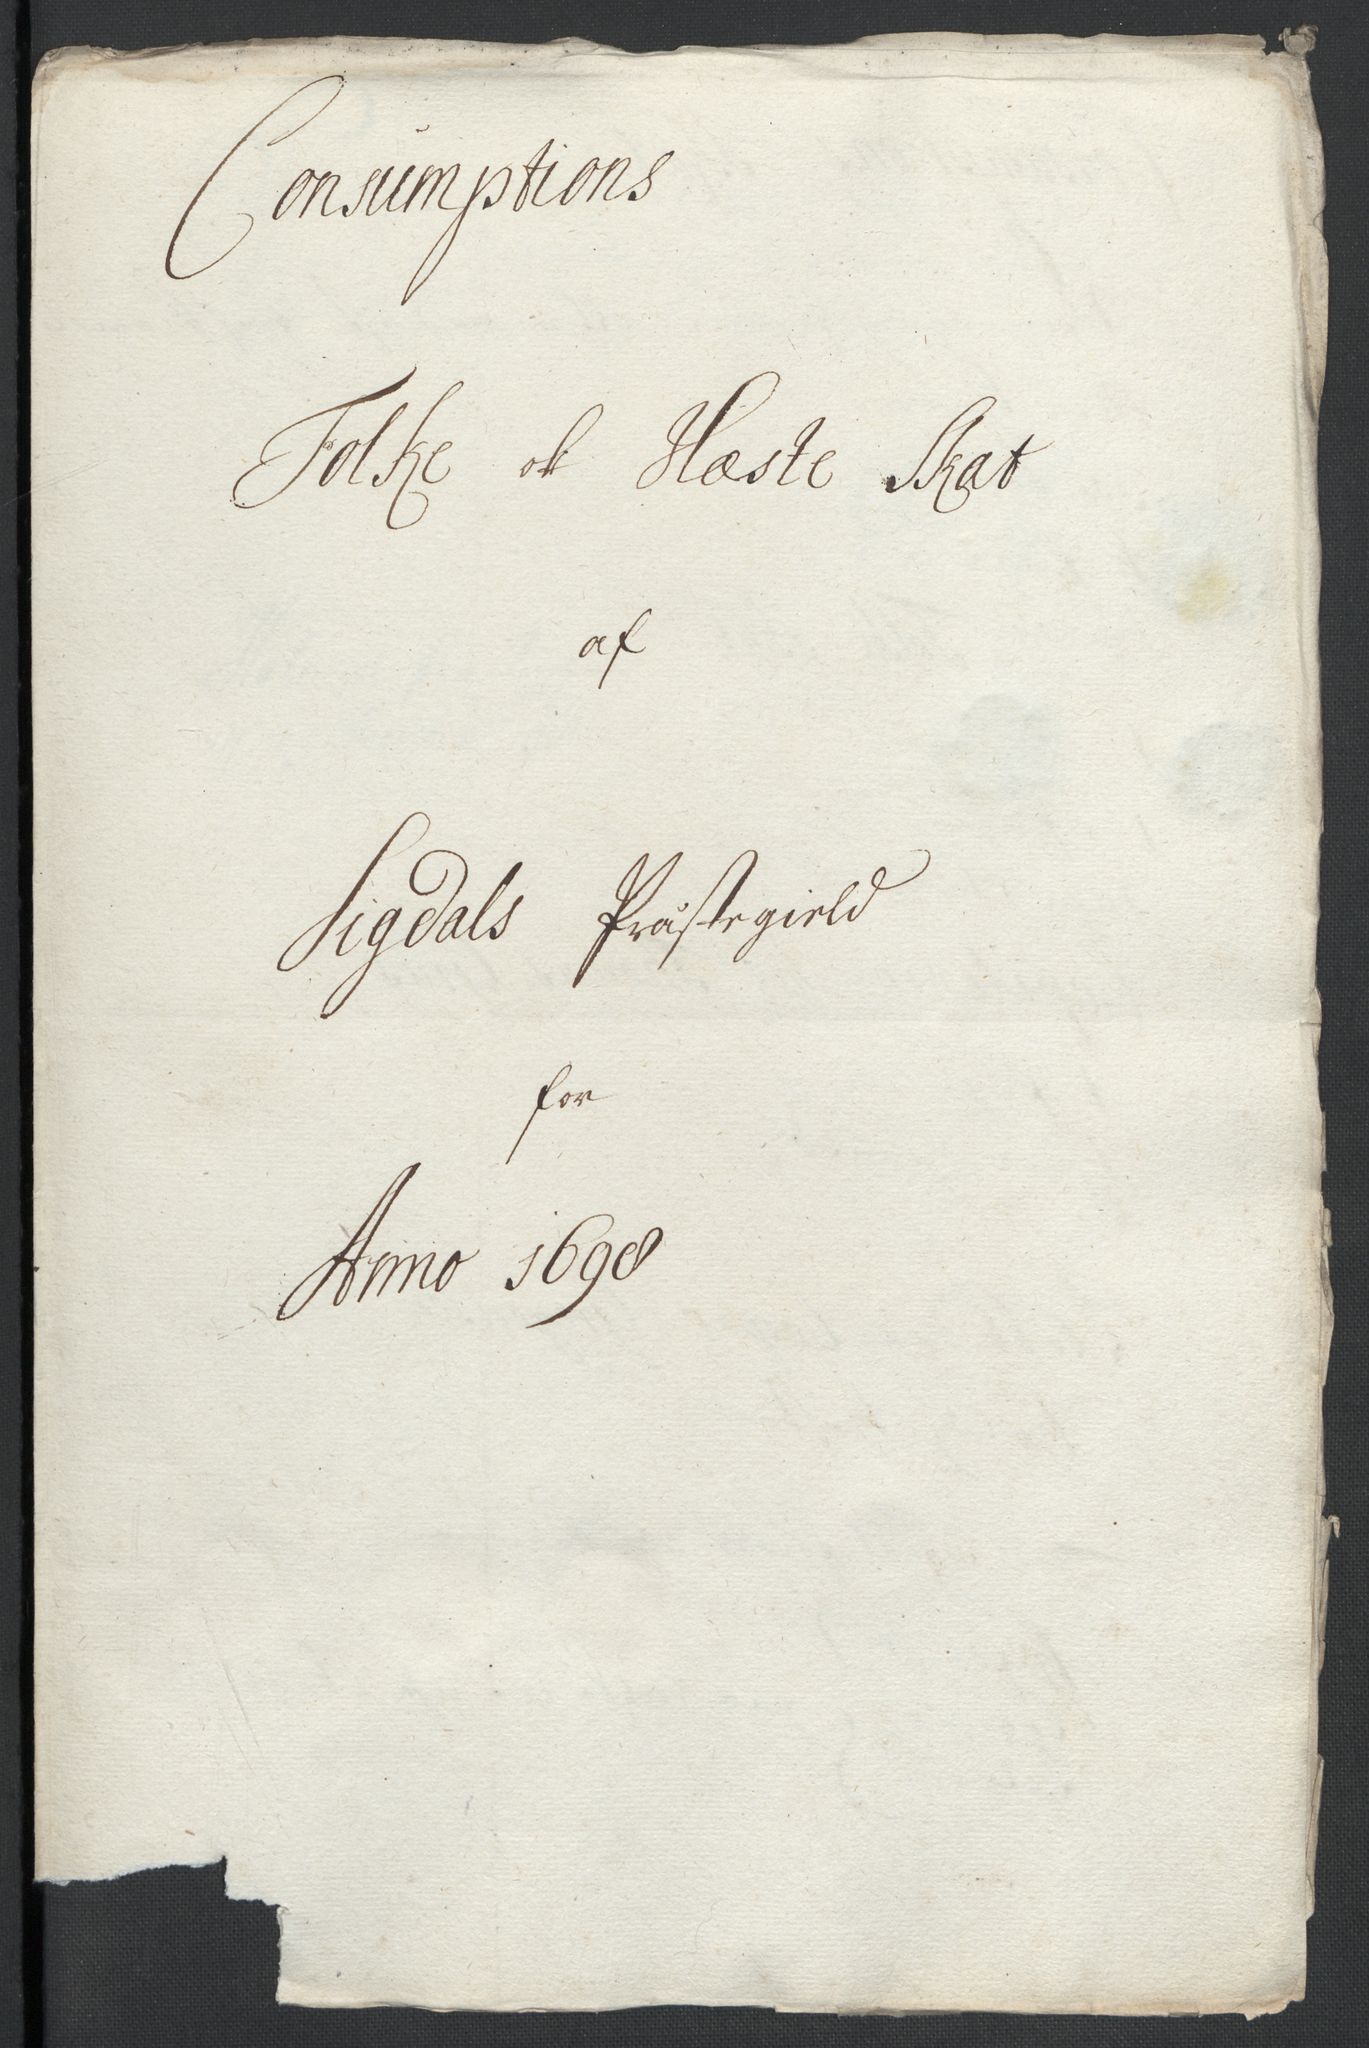 Consumptions
Folke ok Hæste Skat
af
Sigdals Præstegield
for
Anno 1698